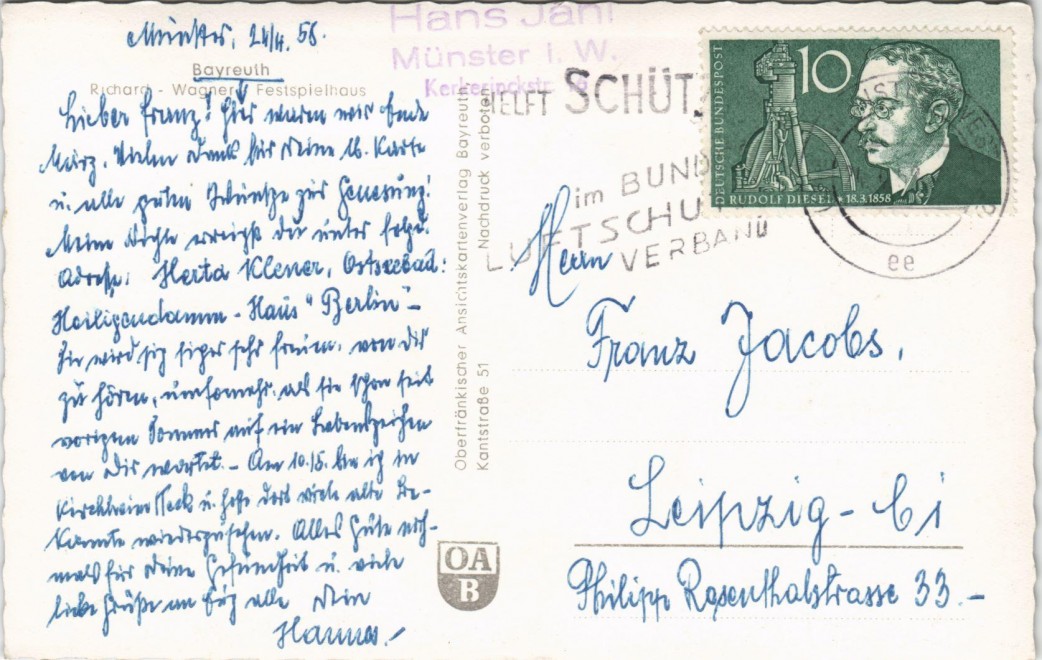 Münster, 24/4. 58.
Bayreuth
Richard - Wagner - Festspielhaus
Lieber Franz! Hier waren wir Ende
März. Vielen Dank für Deine lb. Karte
u. alle guten Wünsche zur Genesung!
Meine Nichte erreichst Du unter folgd.
Adresse: Herta Klener, Ostseebad:
Heiligendamm - Haus "Berlin" -
Sie wird sich sicher sehr freuen, von Dir
zu hören, umsomehr, als sie schon seit
vorigem Sommer auf ein Lebenszeichen
von Dir wartet. - Am 10./5. bin ich in
Kirchheim/Teck u. hoffe dort viele alte Be-
kannte wiederzusehen. Alles Gute noch-
mals für Deine Gesundheit u. viele
liebe Grüße an Euch alle Dein
Hannes.
Oberfränkischer Ansichtskartenverlag Bayreuth
Kantstraße 51
Nachdruck verboten
OA
B
Hans Jahl
Münster i. W.
HELFT SCHÜTZ
im BUND
LUFTSCHU
VERBAND
DEUTSCHE BUNDESPOST
10
RUDOLF DIESEL · 18.3.1858
ee
Herrn
Franz Jacobs.
Leipzig - C1
Philipp Rosenthalstrasse 33.-